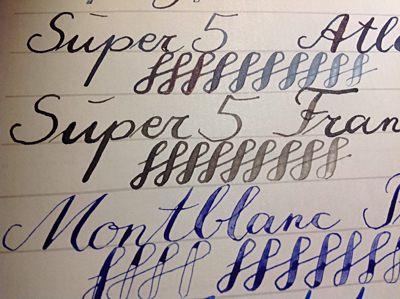 Super 5 Atla
Super 5 Fran
Montblanc